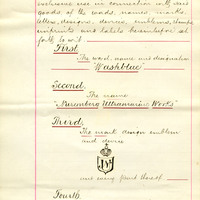 exclusive use in connection with said
goods of the words, names, marks,
letters, designs, devices, emblems, stamps
imprints and labels hereinbefore set
forth to wit:
First
The word, name and designation
"Washblue"
Second
The name
"Nuremberg Ultramarine Works"
Third
The mark design emblem
and device
and every part thereof
Fourth